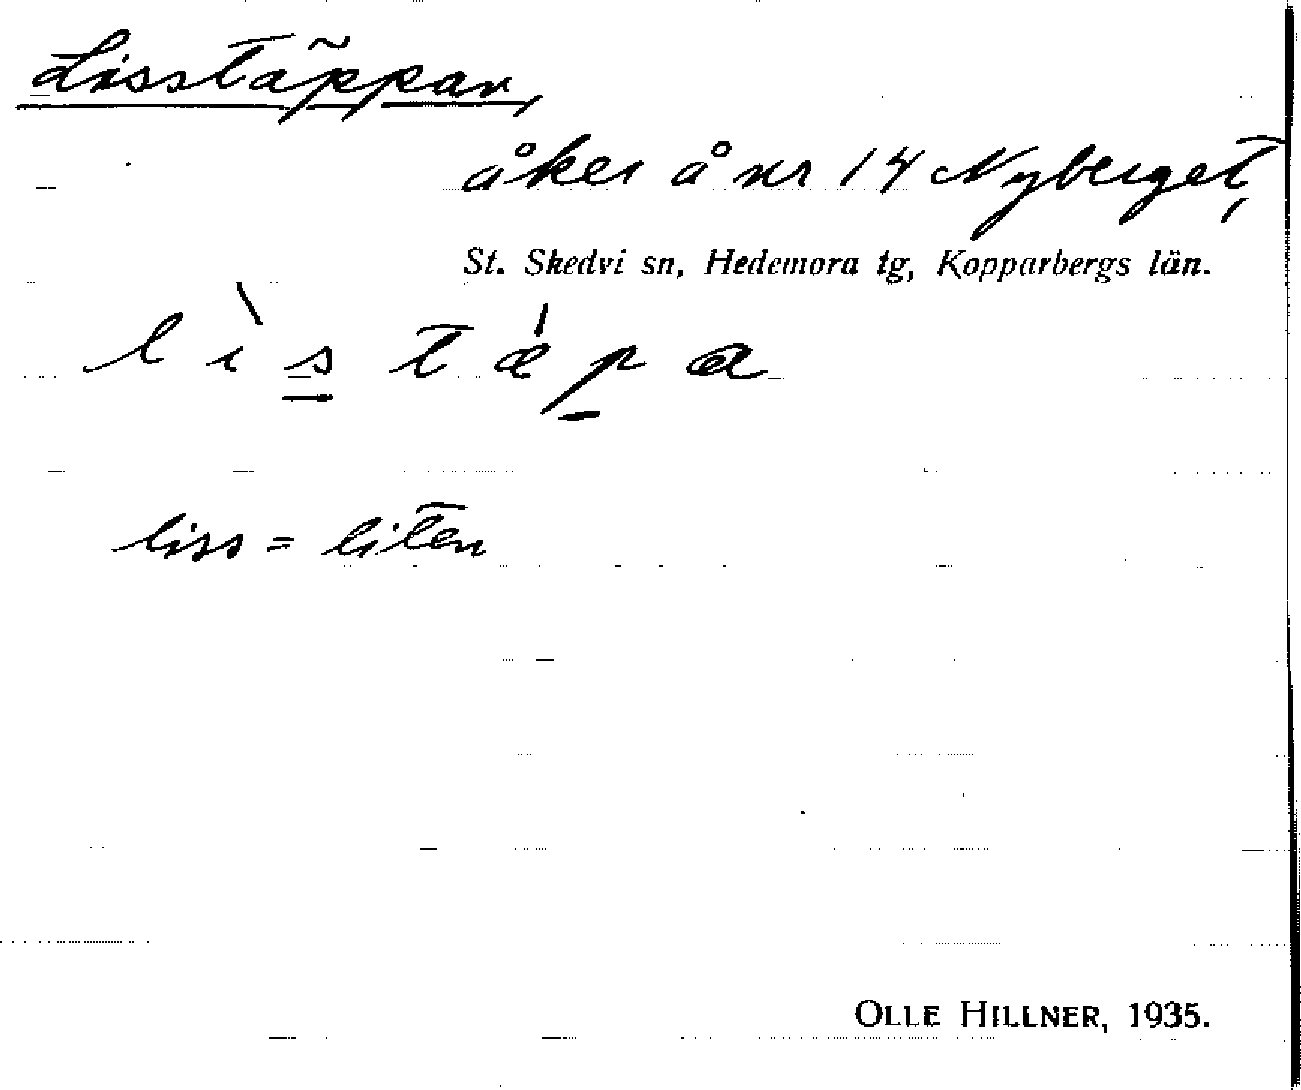 Lisstäppan,
åker å nr 14 Nyberget,
St. Skedvi sn, Hedemora tg, Kopparbergs län.
l ì s t ǽ p a
liss = liten
OLLE HILLNER, 1935.